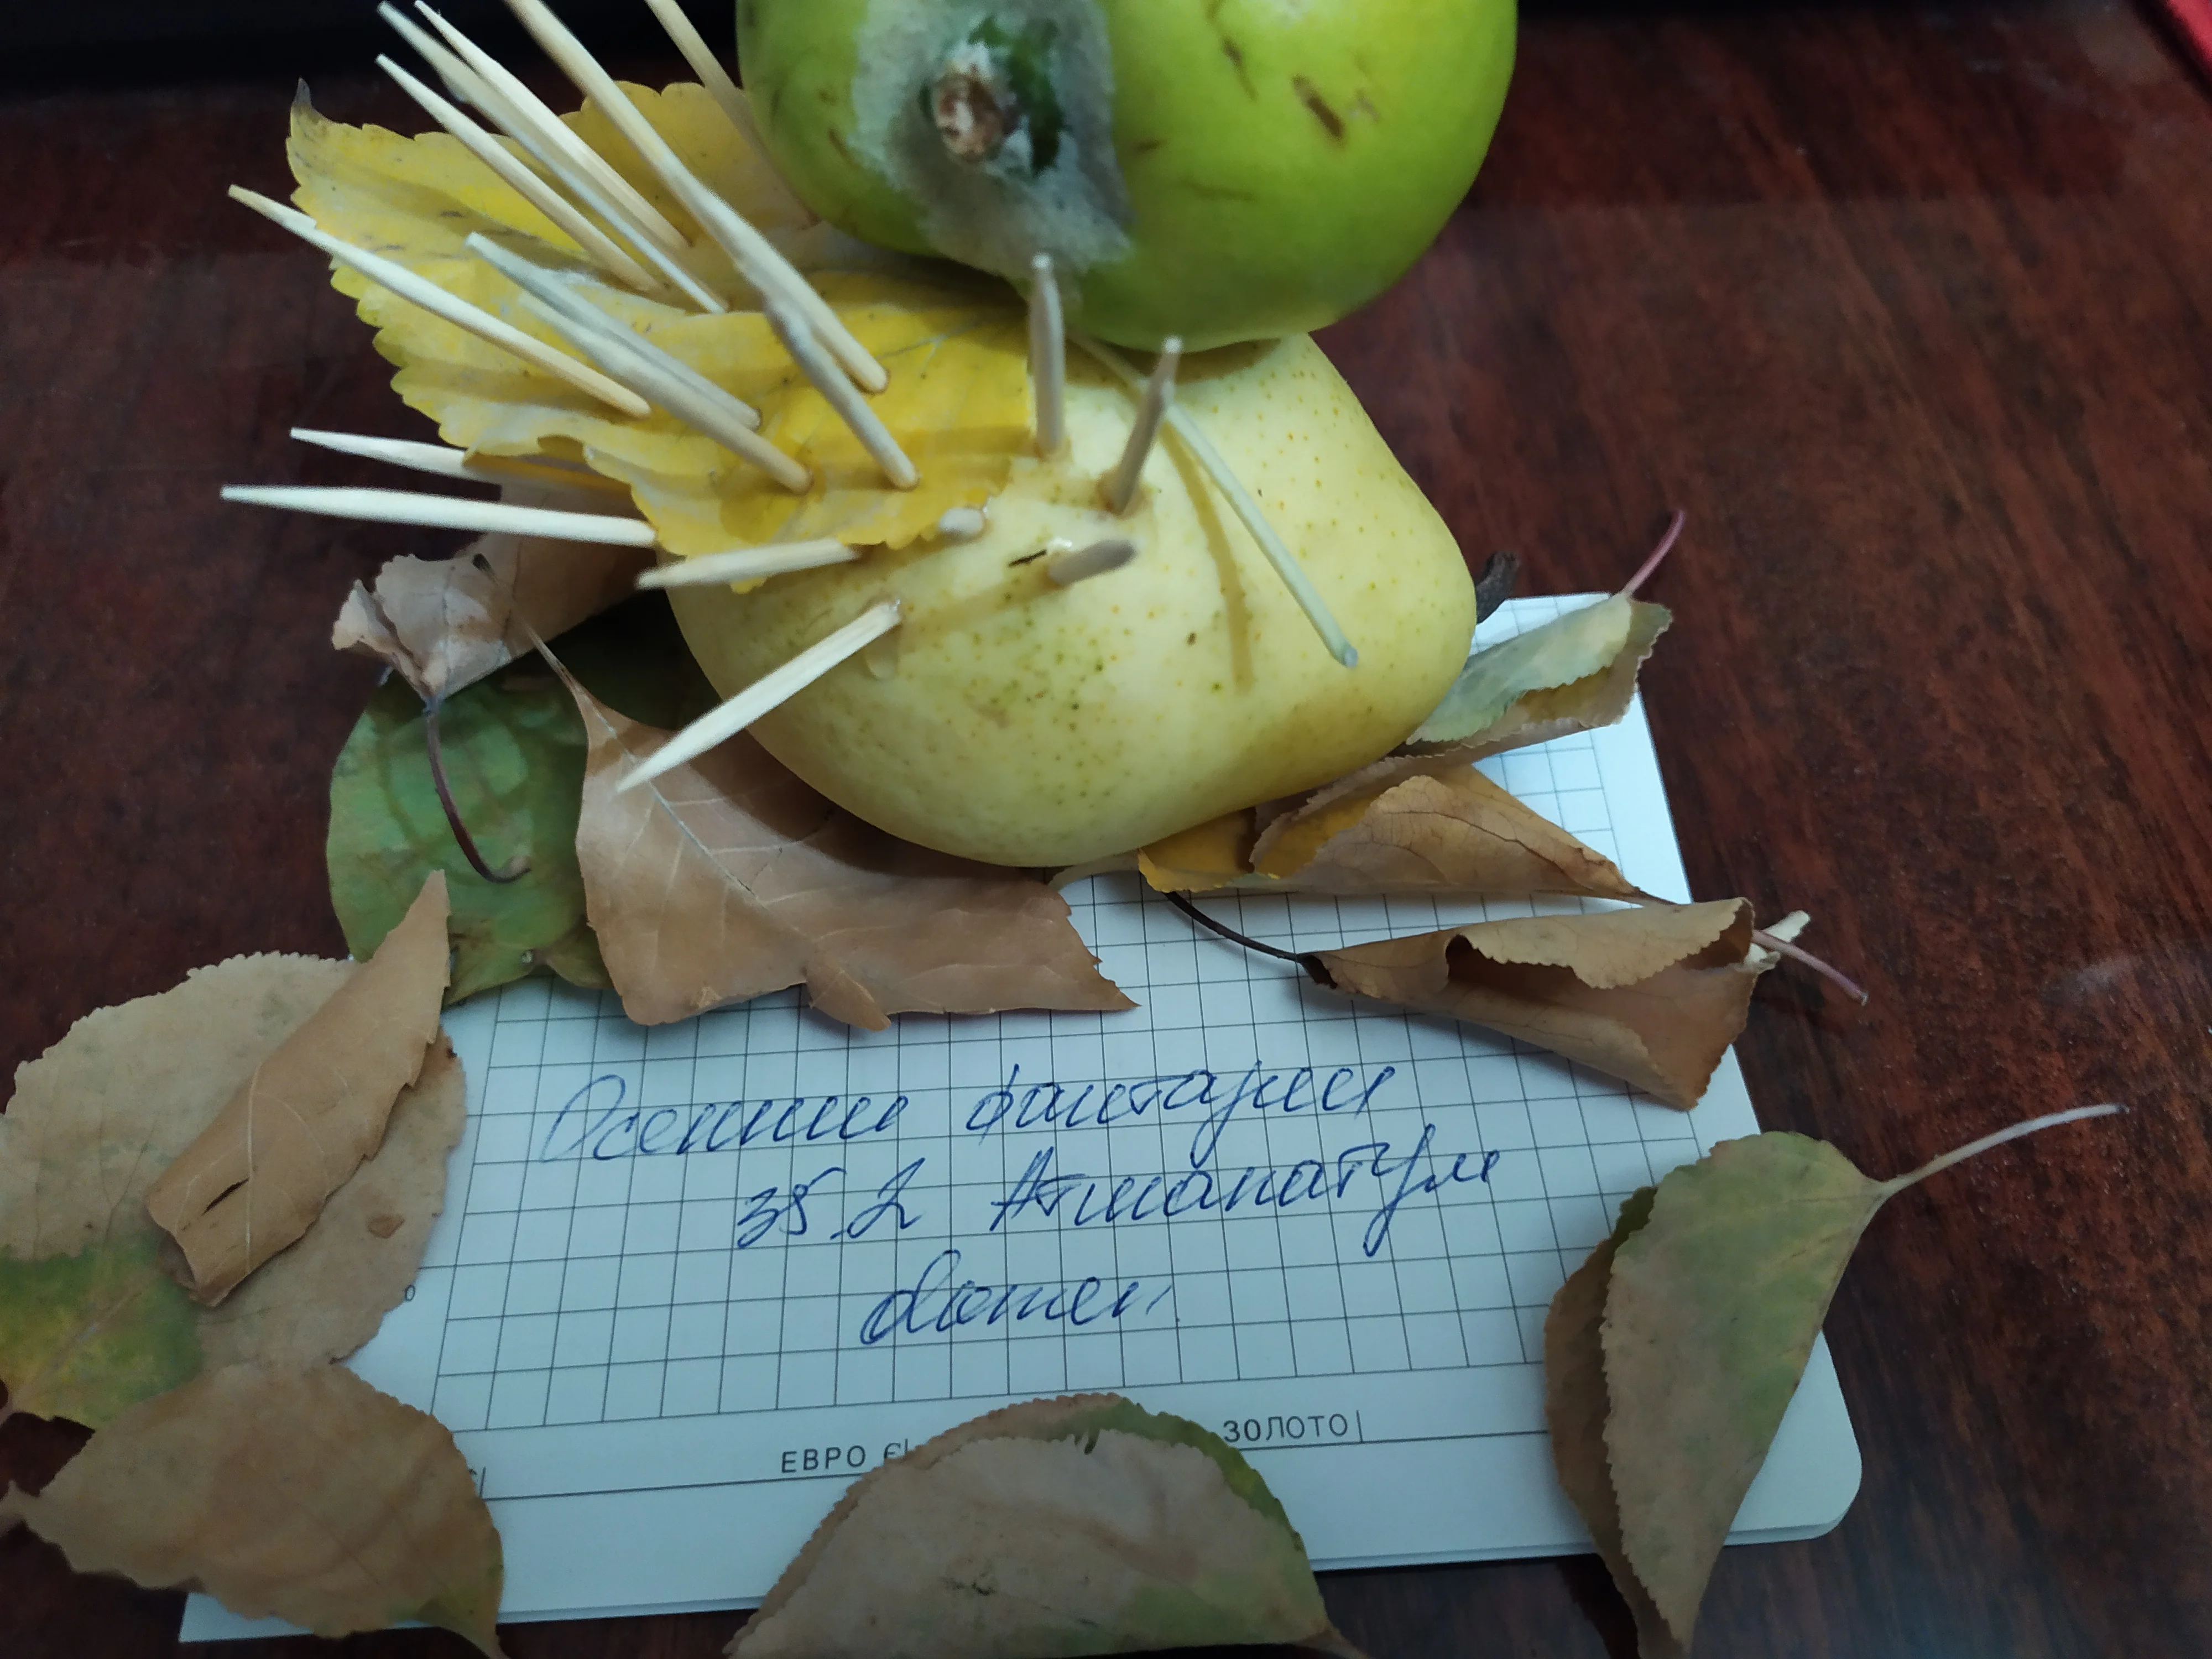 Осенние фантазии
35.2 Атманатум
домен
ЕВРО €|
ЗОЛОТО|